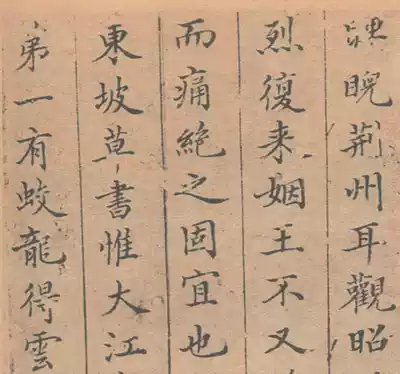 睥睨荊州耳觀昭
烈復来姻王不又
而痛絕之固宜也
東坡草書惟大江
第一有蛟龍得雲